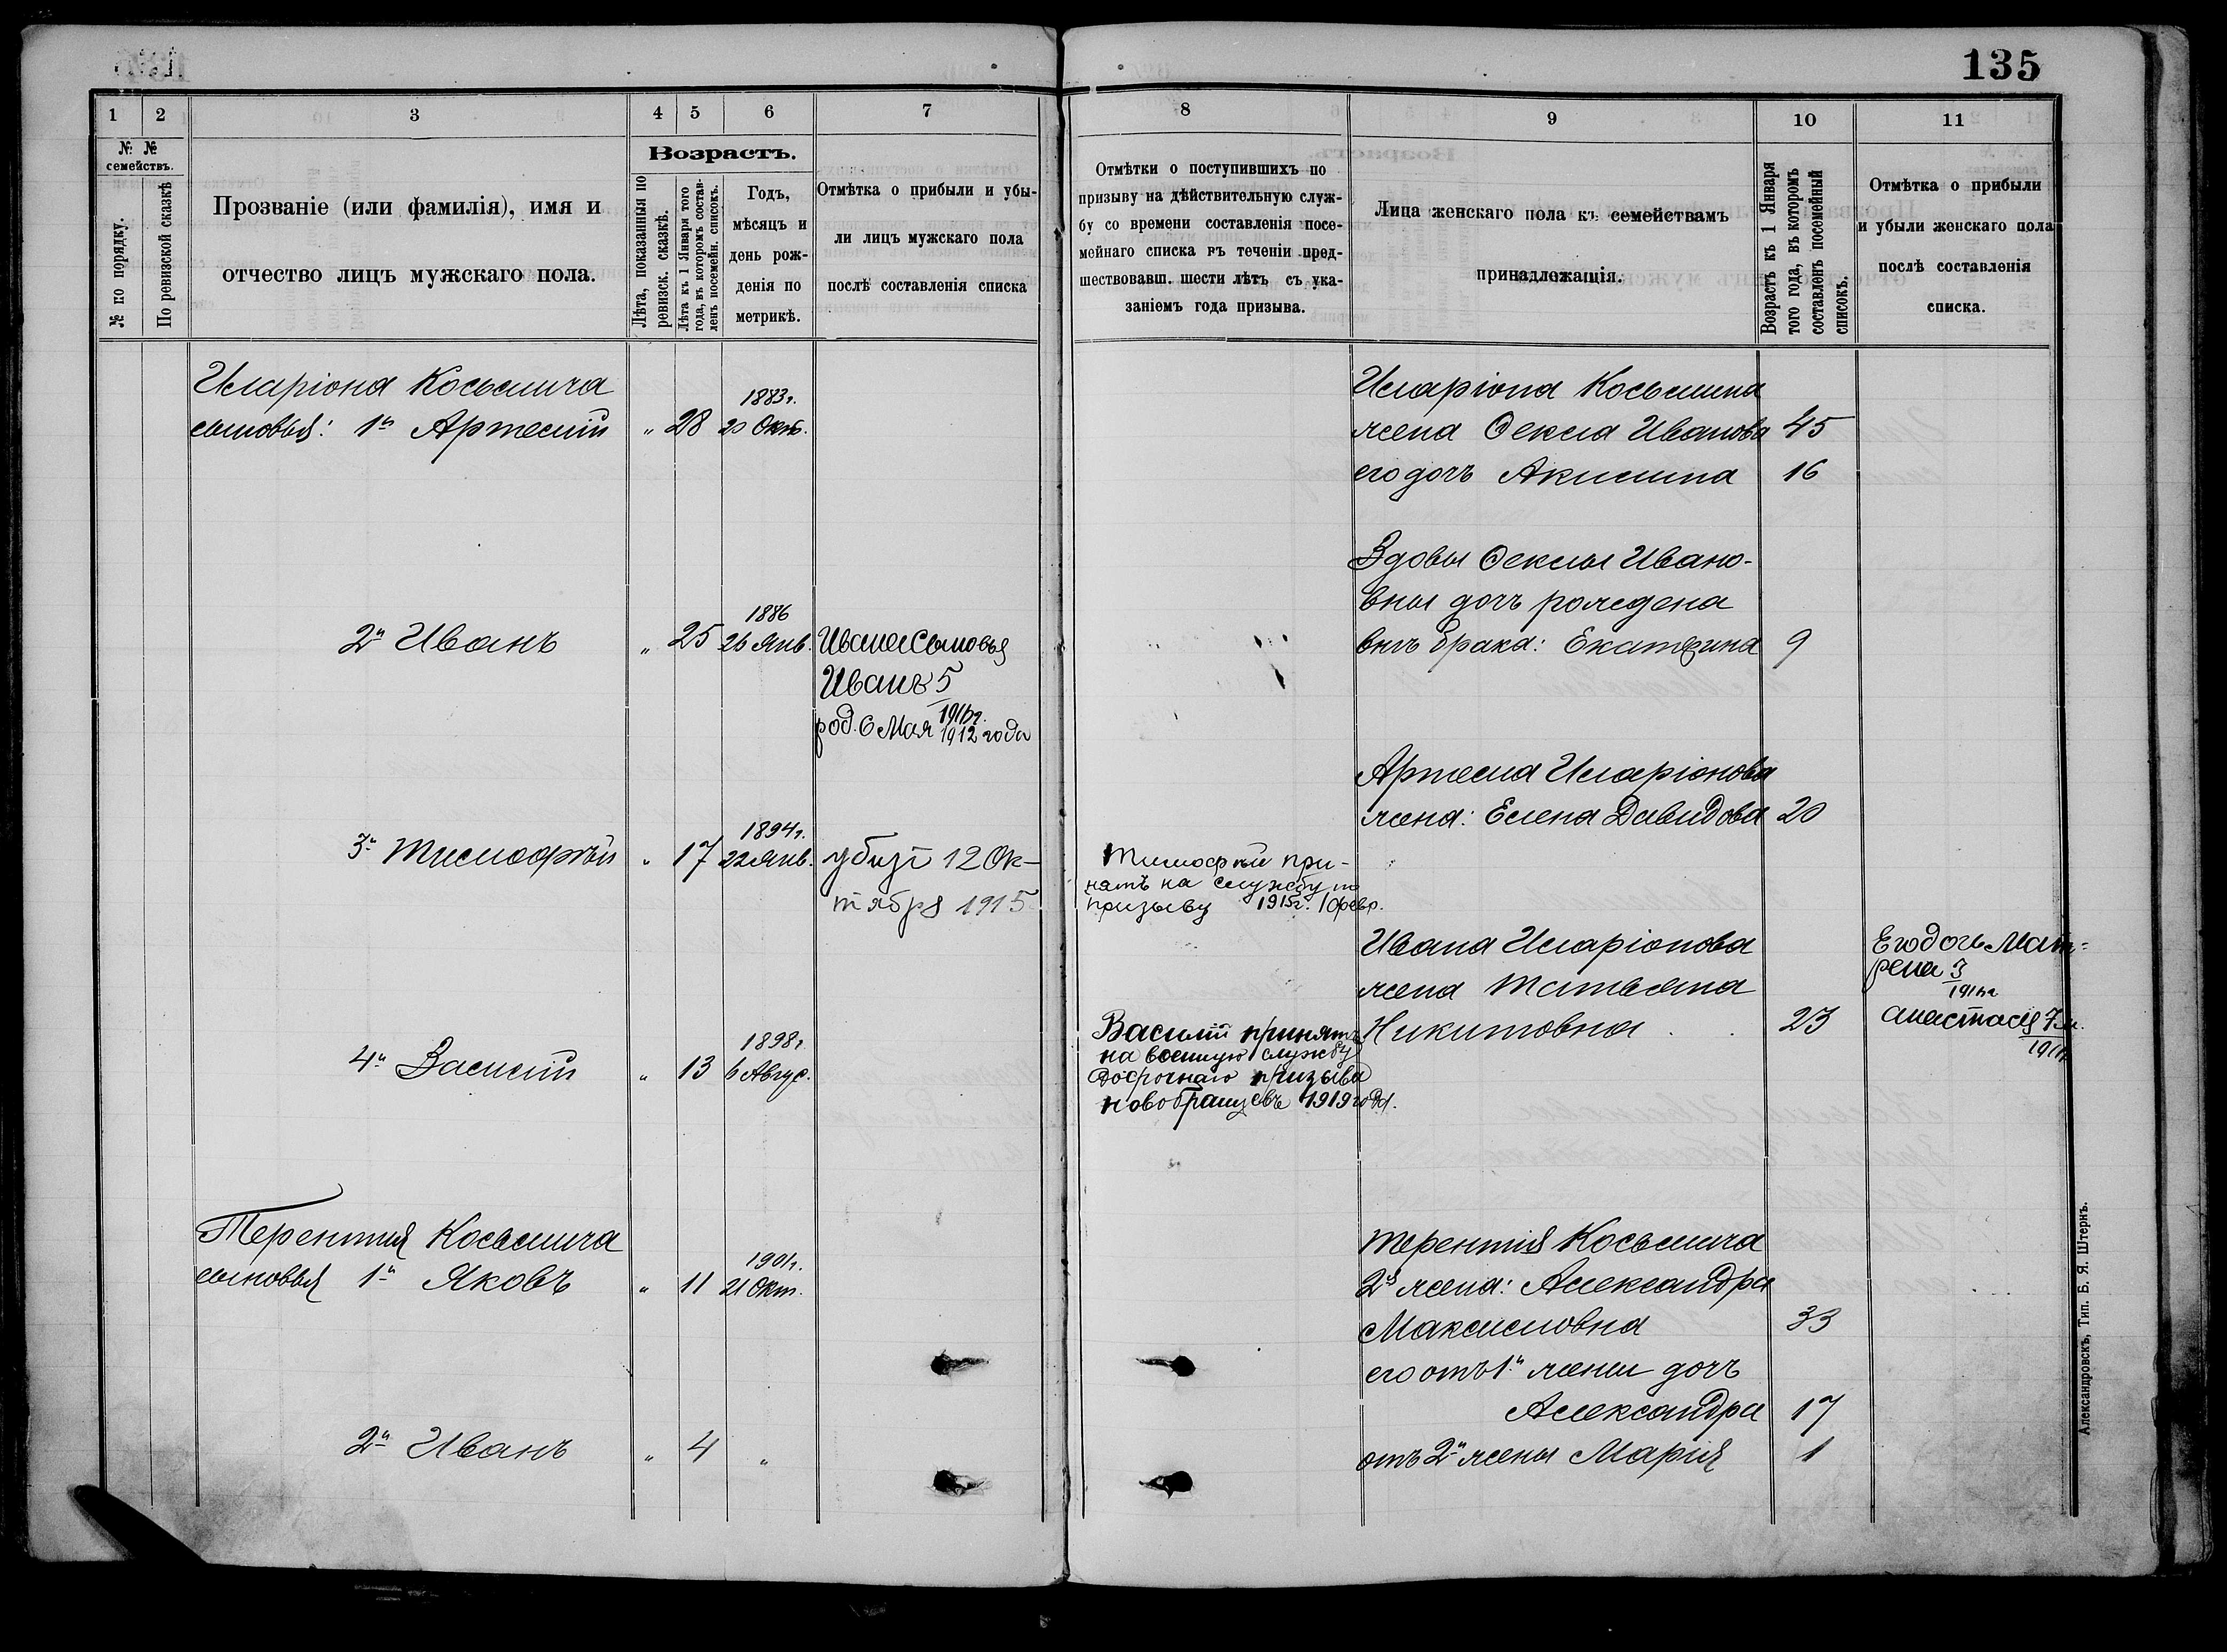 135
1
2
3
4
5
6
7
№ №
семействъ.
№ по порядку.
По ревизской сказкѣ
Прозваніе (или фамилія), имя и
отчество лицъ мужскаго пола.
Возрастъ.
Лѣта, показанныя по
ревизск. сказкѣ.
Лѣта къ 1 Января того
года, въ которомъ состав-
ленъ посемейн. списокъ.
Годъ,
мѣсяцъ и
день рож-
денія по
метрикѣ.
Отмѣтка о прибыли и убы-
ли лицъ мужскаго пола
послѣ составленія списка
Иларіона Косьмича
сыновья: 1й Артемій " 28 1883г.
20 Окт.
2й Иванъ " 25 1886
26 Янв.
Ивана сыновья
Иванъ 5
род. 6 Мая 1912 года
3й Тимофѣй " 17 1894г.
22 Янв.
убитъ 12 Ок-
тября 1915
4й Василій " 13 1898г.
6 Авгус.
Терентія Косьмича
сыновья 1й Яковъ " 11 1901г.
21 Окт.
2й Иванъ " 4 "
8
9
10
11
Отмѣтки о поступившихъ по
призыву на дѣйствительную служ-
бу со времени составленія посе-
мейнаго списка въ теченіи пред-
шествовавш. шести лѣтъ съ ука-
заніемъ года призыва.
Лица женскаго пола къ семействамъ
принадлежащія.
Возрастъ къ 1 Января
того года, въ которомъ
составленъ посемейный
списокъ.
Отмѣтка о прибыли
и убыли женскаго пола
послѣ составленія
списка.
Иларіона Косьмина
жена Ѳекла Иванова 45
его дочь Акилина 16
Вдовы Ѳеклы Ивано-
вны дочь рождена
внѣ брака: Екатерина 9
Артема Иларіонова
жена: Елена Давидова 20
Тимофѣй при-
нятъ на службу по
призыву 1915г. 10 февр.
Ивана Иларіонова
жена Татьяна
Никитовна 23
Его дочь Мат-
рена 3
Анастасія 7 м.
Василій принятъ
на военную службу
досрочнаго призыва
новобранцевъ 1919 года.
Терентія Косьмича
2я жена: Александра
Максимовна 33
его отъ 1й жены дочь
Александра 17
отъ 2й жены Марія 1
Александровскъ, Тип. Б. Я. Штернъ.